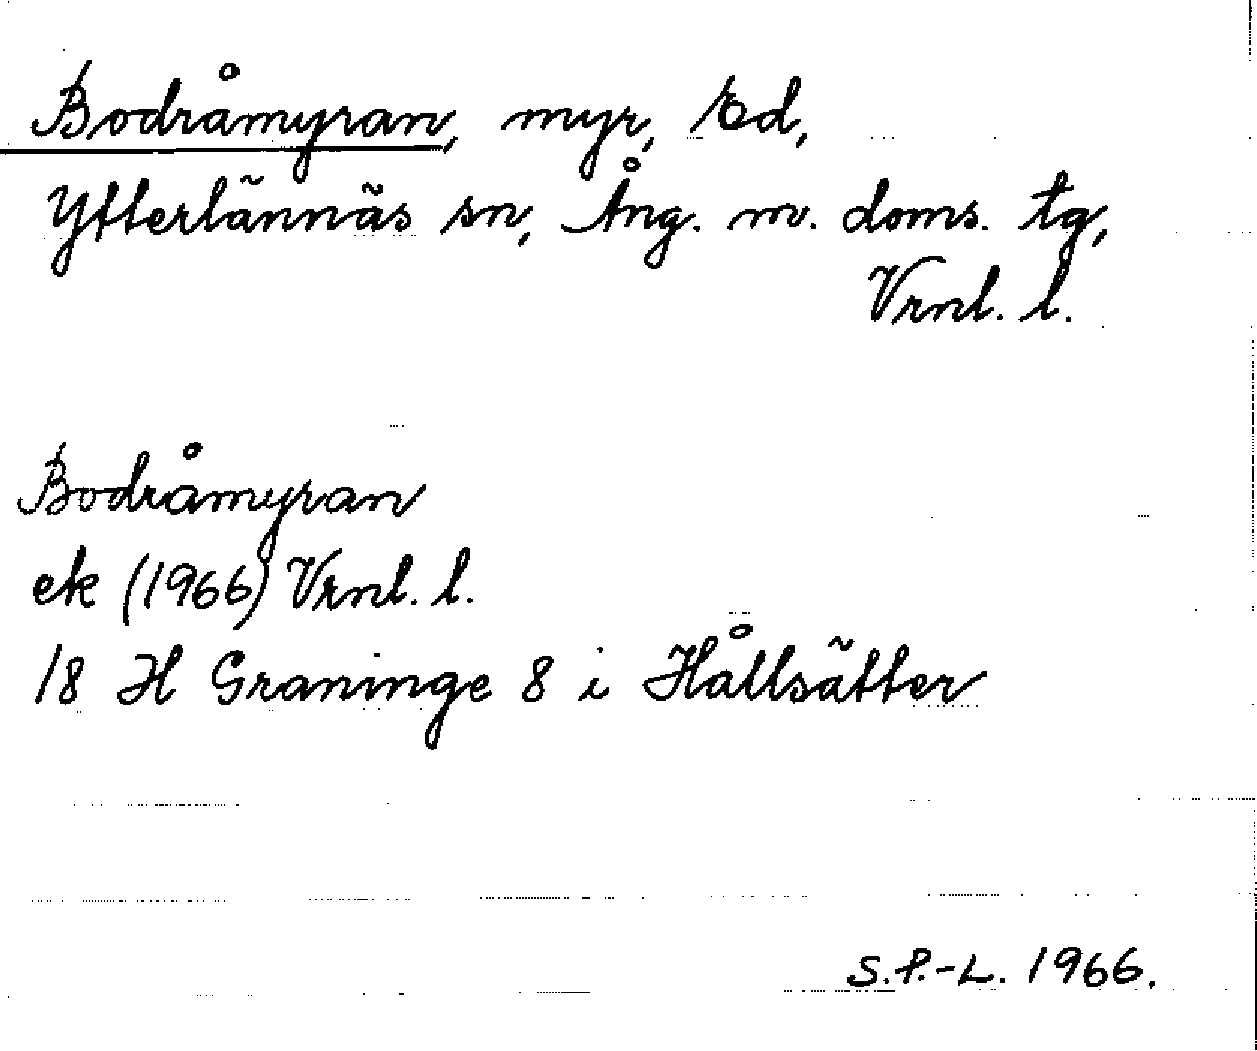 Bodråmyran, myr, Ed,
Ytterlännäs sn, Ång. m. doms. tg,
Vrnl. l.
Bodråmyran
ek (1966) Vrnl. l.
18 H Graninge 8 i Hållsätter
S.P.-L. 1966.